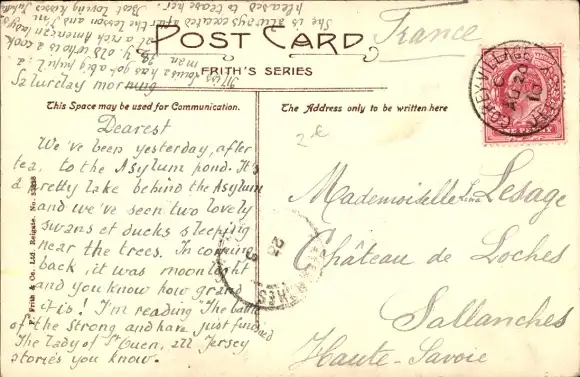 POST CARD
FRITH'S SERIES
This Space may be used for Communication.
The Address only to be written here
France
Saturday morning
Dearest
We've been yesterday, after
tea, to the Asylum pond. It's
a pretty lake behind the Asylum
and we've seen two lovely
swans et ducks sleeping
near the trees. In coming
back, it was moonlight
and you know how grand
it is! I'm reading The battle
of the strong and have just finished
The lady of St Ouen, all Jersey
stories you know.
Miss
has got a big
man
y. old who is a cook
at a rich American lady's
She is always excited after the lesson and I am
pleased to tease her. Best loving kisses
Mademoiselle Lesage
Château de Loches
Sallanches
Haute-Savoie
F. Frith & Co. Ltd. Reigate. No.
VILLAGE
AU 20
10
ONE PENNY